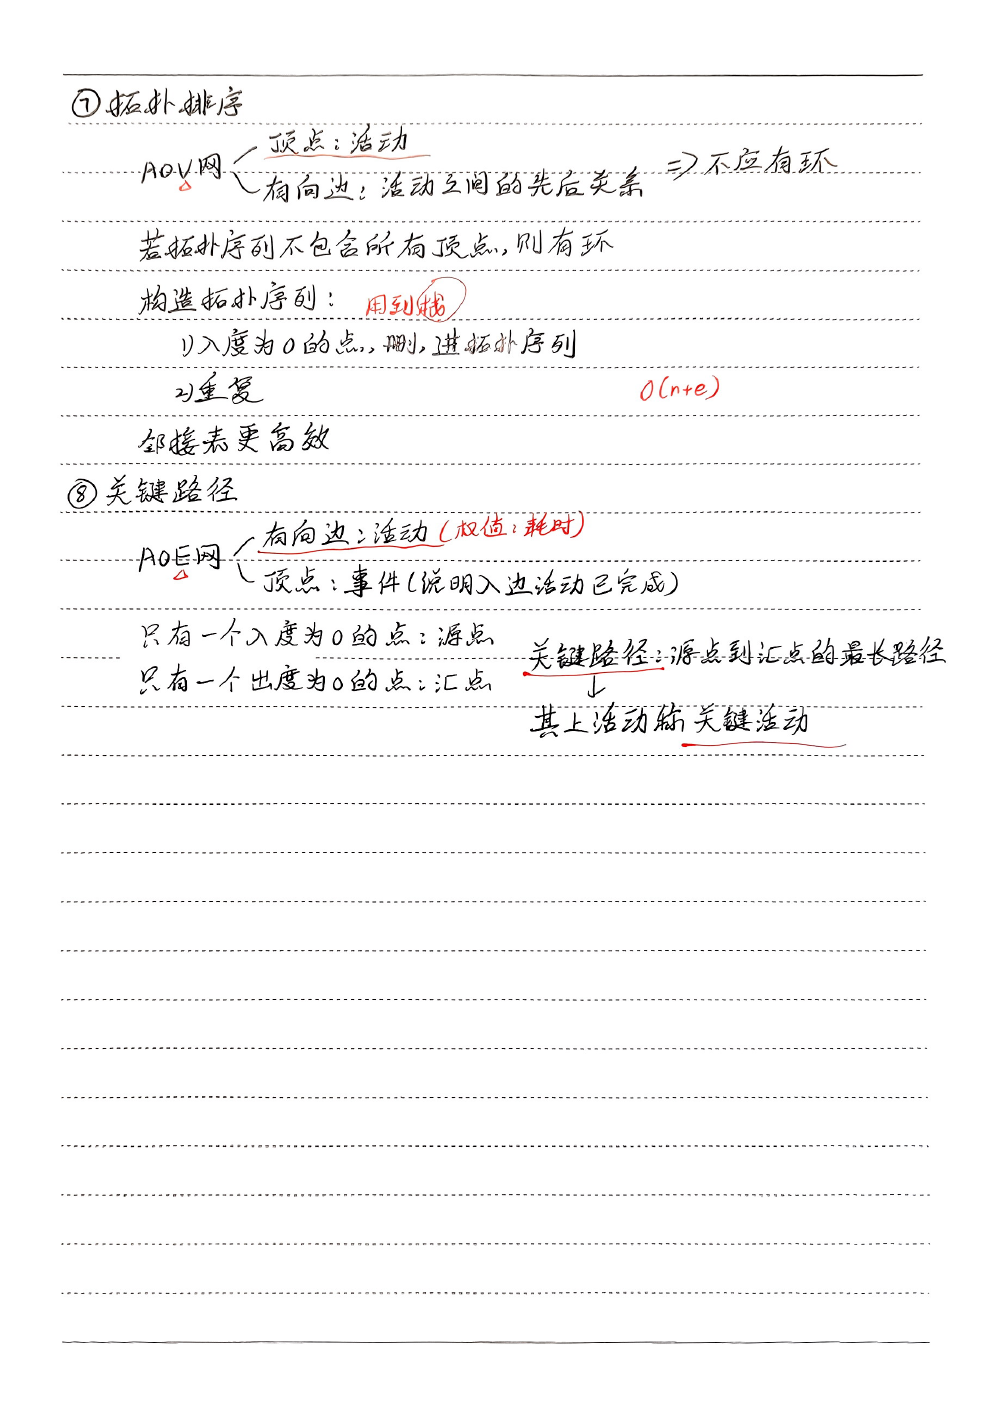 ⑦拓扑排序
AOV网 顶点：活动
有向边：活动之间的先后关系 => 不应有环
若拓扑序列不包含所有顶点，则有环
构造拓扑序列： 用到栈
1)入度为0的点，删，进拓扑序列
2)重复 O(n+e)
邻接表更高效
⑧关键路径
AOE网 有向边：活动（权值：耗时）
顶点：事件（说明入边活动已完成）
只有一个入度为0的点：源点
只有一个出度为0的点：汇点
关键路径：源点到汇点的最长路径
↓
其上活动称关键活动